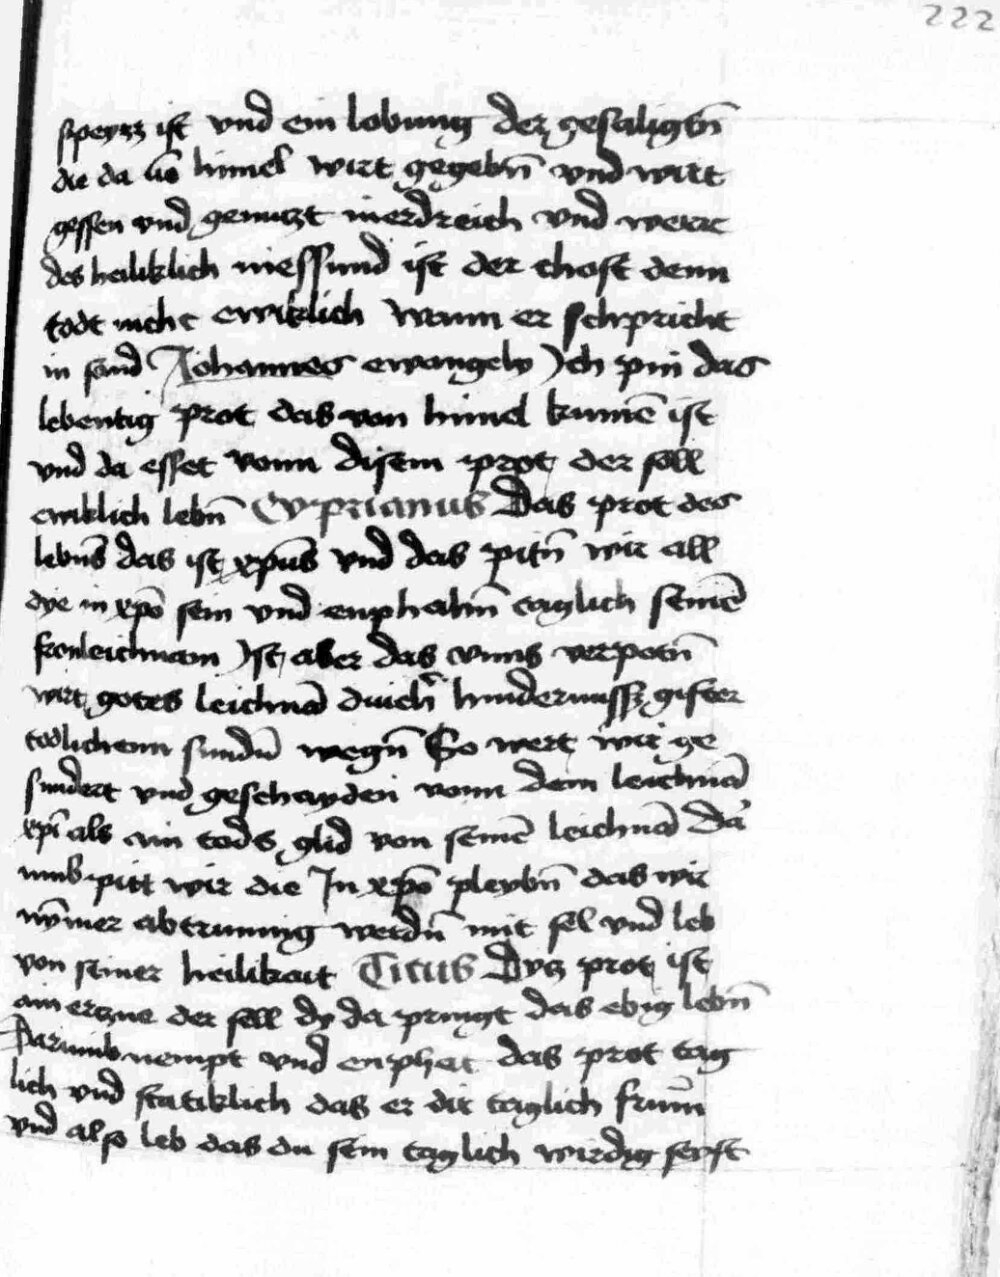 222
speyzz ist vnd ein lobung der gesaligtn̄
die da vō himel wirt gegebn̄ vnd wirt
gessen vnd genuczt in erdreich vnd werr
des heiliklich niessund ist der chost denn
todt nicht ewiklich wann er schpricht
in sand Johannes ewangely Ich pin das
lebentig prot das von himel kumē ist
vnd da esset vonn disem prot der soll
ewiklich lebn̄ Cyprianus Das prot des
lebn̄s das ist xp̄us vnd das pitn̄ wir all
dye in xp̄o sein vnd enphahn̄ taglich seinē
fronleichnam Ist aber das vnns verpotn̄
wirt gotes leichnā durich hindernussz gifter
todlichenn sundn̄ wegn̄ So wert wir ge
sundert vnd geschayden vonn dem leichnā
xp̄i als ain tods glid von seinē leichnā Da
umb pitt wir die Jn xp̄o pleybn̄ das wir
nȳmer abtrunnig werdn̄ mit sel vnd leb
von seiner heilikait Titus Dycz prot ist
ain erczne der sell dy da pringt das ebig lebn̄
Darumb nempt vnd enphat das prot tag
lich vnd statiklich das er dir taglich frum̄
vnd also leb das du sein taglich wirdig seyst